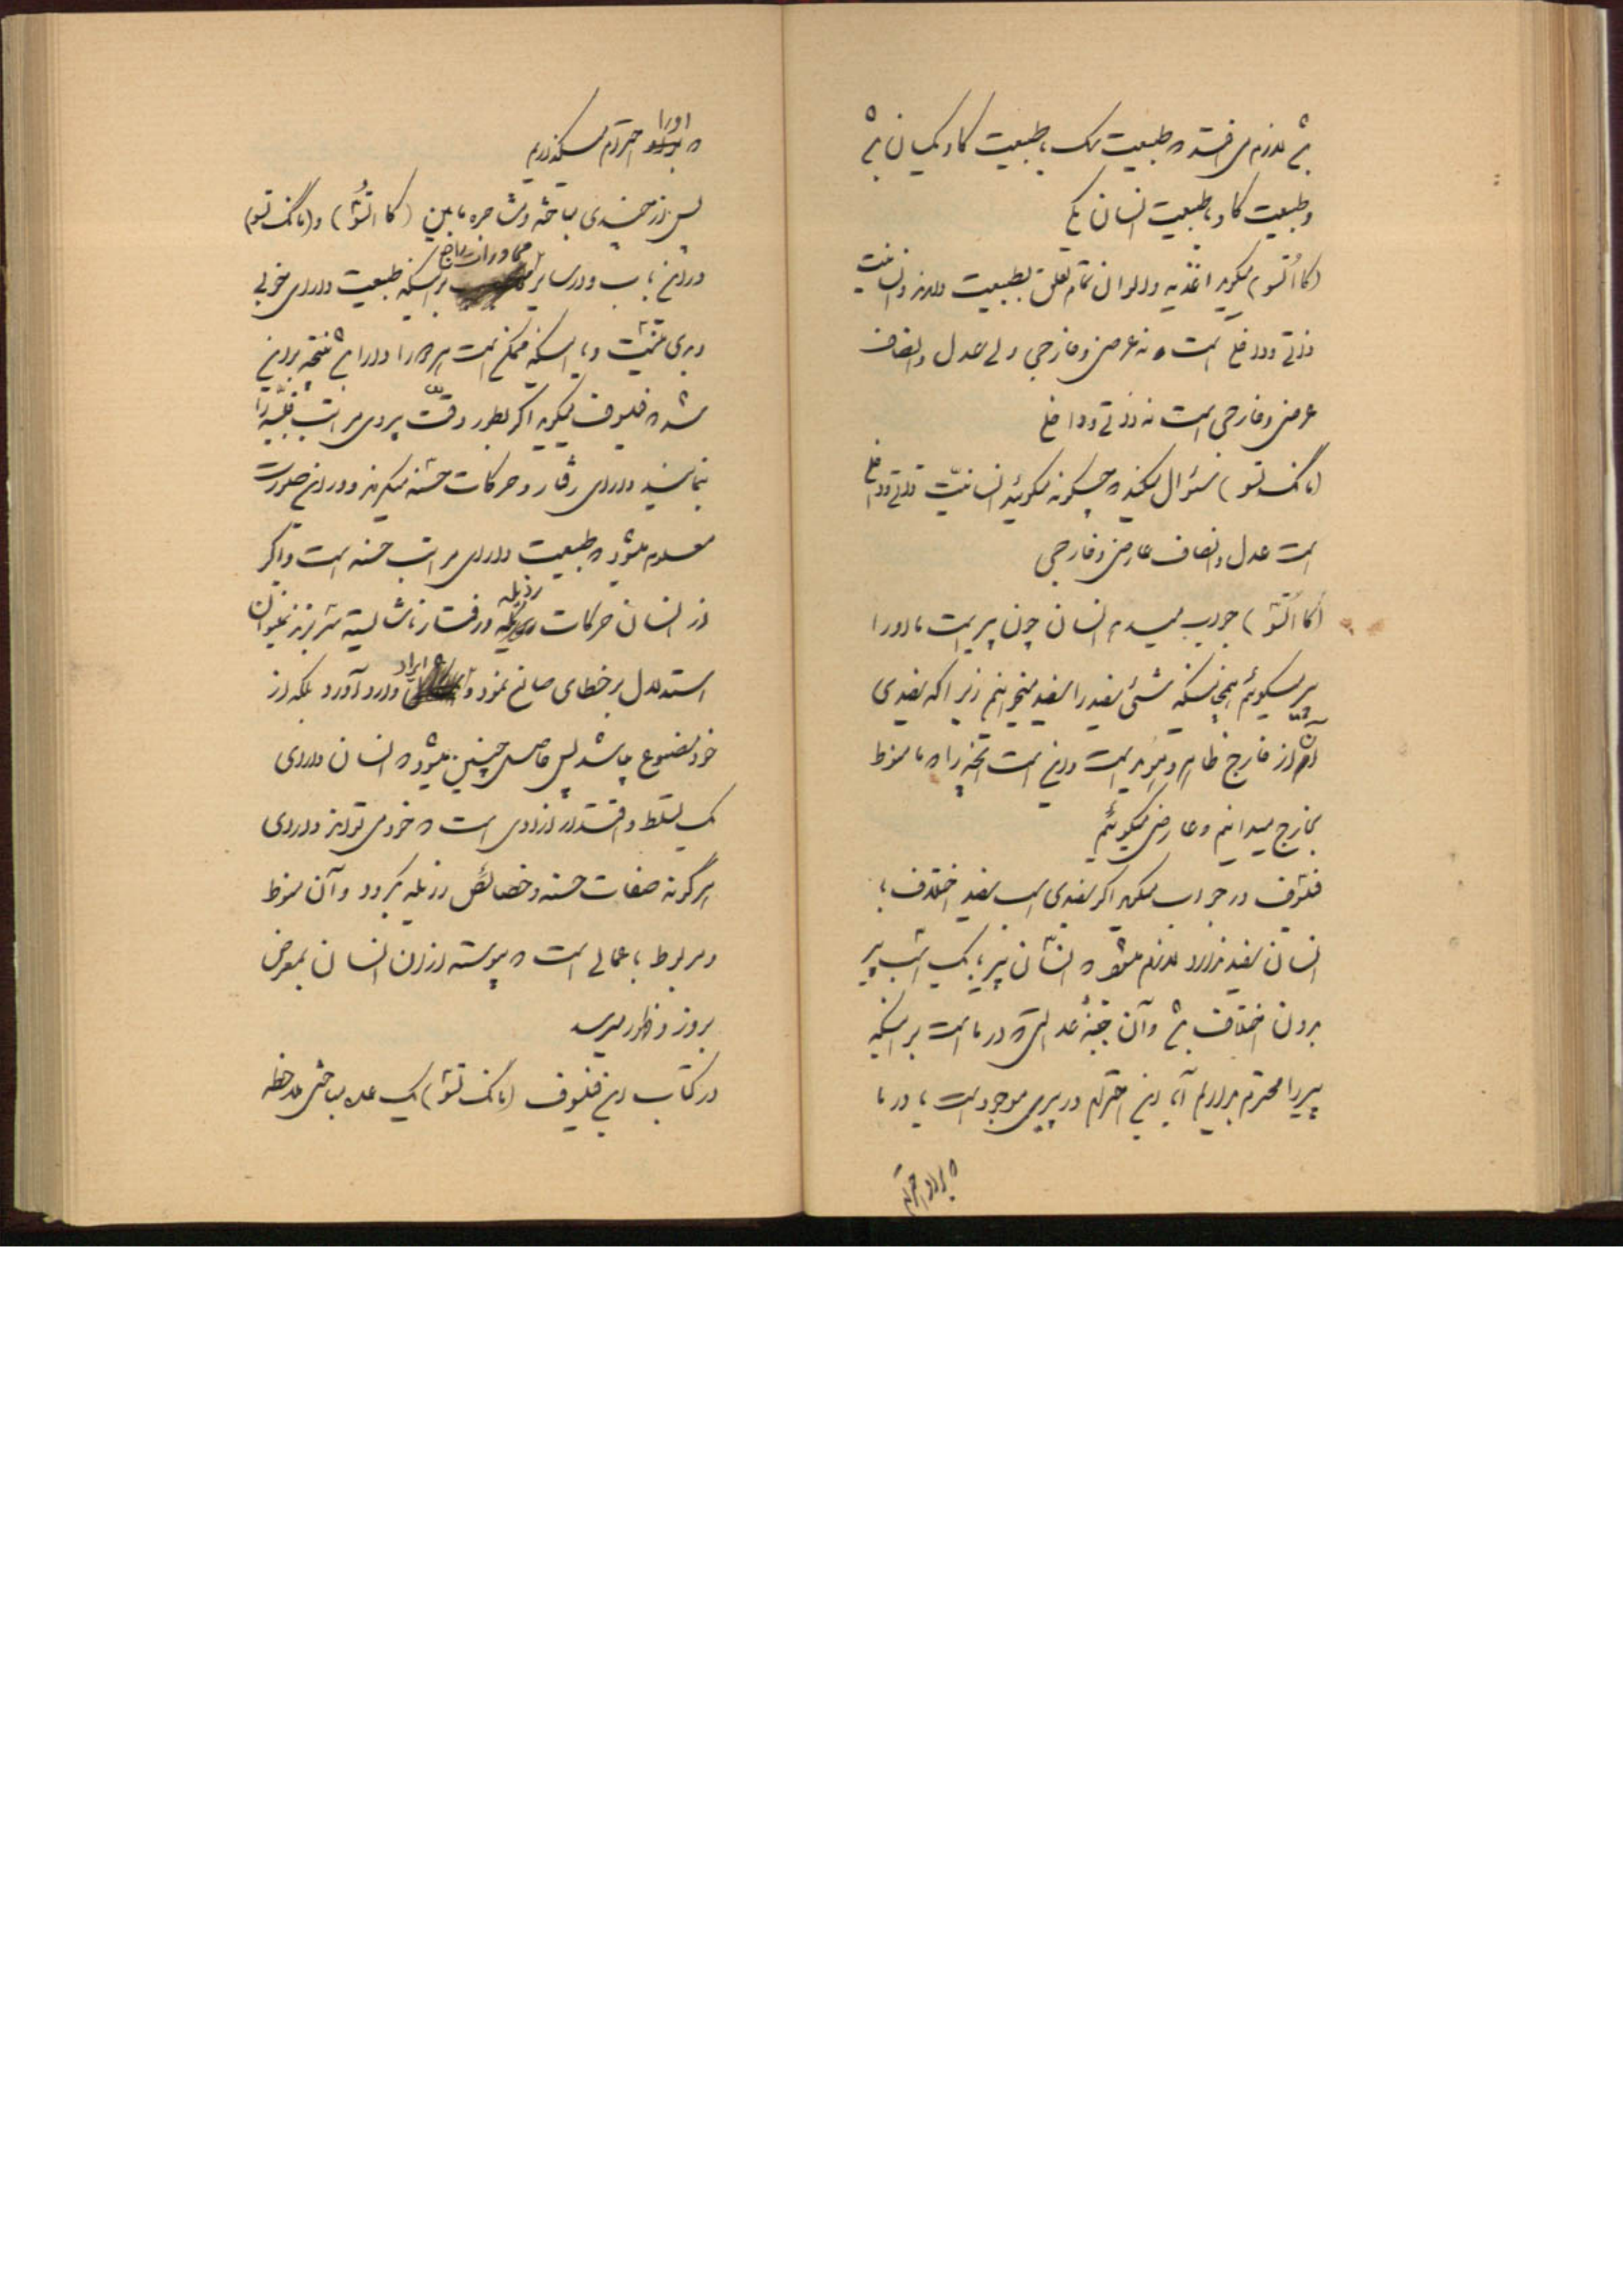 باشد لازم می افتد که طبیعت سگ با طبیعت گاو یکسان باشد
و طبیعت گاو با طبیعت انسان یکی
(کااتسو) میگوید اغذیه و الوان تمام تعلق بطبیعت دارند و انسانیت
ذاتی و داخلی است نه عرضی و خارجی ولی عدل و انصاف
عرضی و خارجی است نه ذاتی و داخلی
(مانگ تسو) سئوال میکند که چگونه میگوئید انسانیت ذاتی و داخلی
است عدل و انصاف عارضی و خارجی
(کااتسو) جواب میدهد انسان چون پیر است ما او را
پیر میگوئیم همچنانکه شئی سفید را سفید میخوانیم زیرا که سفیدی
آن از خارج ظاهر و است و این است آنچه را که ما منوط
بخارج میدانیم و عارضی میگوئیم
فیلسوف در جواب میگوید اگر سفیدی اسب سفید اختلاف با
انسان سفید ندارد لازم میشود که انسان پیر با یک اسب پیر
بدون اختلاف باشد و آن جنبهٔ عدالتی که در ما است بر اینکه
پیر را محترم بداریم آیا این احترام در پیری موجود است یا در ما
که براو احترام
که او را احترام میگذاریم
پس از چندی مباحثه و مشاجره مابین (کااتسو) و (مانگ تسو)
در این باب و در سایر محاورات راجع بر اینکه طبیعت دارای خوبی
و بدی نیست و یا اینکه ممکن است هر دو را دارا باشد نتیجه بر این
شد که فیلسوف میگوید اگر بطور دقت پیروی مراتب را
نمایند دارای رفتار و حرکات حسنه میگردند و در این صورت
معلوم میشود که طبیعت دارای مراتب حسنه است و اگر
از انسان حرکات رذیله و رفتار ناشایسته سر بزند نمیتوان
استدلال بر خطای صانع نمود و ایراد وارد آورد بلکه از
خود مصنوع میباشد پس حاصل چنین میشود که انسان دارای
یک تسلط و اقتدار ازادی است که خود می تواند دارای
هرگونه صفات حسنه و خصائص رذیله گردد و آن منوط
و مربوط باعمالی است که پیوسته از آن انسان بمعرض
بروز و ظهور میرسد
در کتاب این فیلسوف (مانگ تسو) یک عده مباحثی ملاحظه